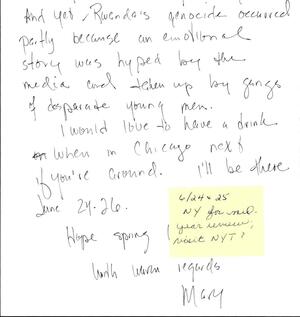 And yet, Rwanda's genocide occurred
partly because an emotional
story was hyped by the
media and taken up by gangs
of desparate young men.
I would love to have a drink
when in Chicago next
if you're around. I'll be there
June 24-26.
Hope spring
With warm regards
Mary
6/24 & 25
NY for mid.
year review,
visit NYT?